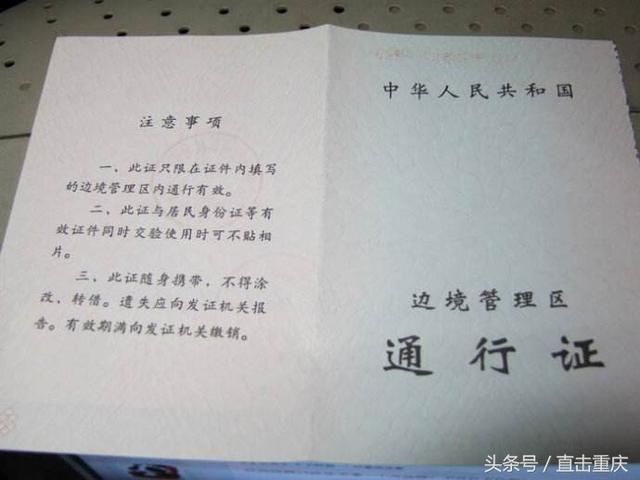 注意事项
一、此证只限在证件内填写
的边境管理区内通行有效。
二、此证与居民身份证等有
效证件同时交验使用时可不贴相
片。
三、此证随身携带，不得涂
改、转借。遗失应向发证机关报
告。有效期满向发证机关缴销。
中华人民共和国
边境管理区
通行证
头条号／直击重庆